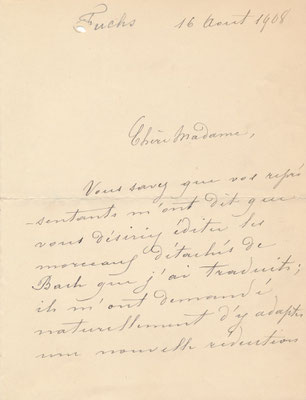 Fuchs 16 Aout 1908
Chère Madame,
Vous savez que vos repré
-sentants m'ont dit que
vous désiriez éditer les
morceaux détachés de
Bach que j'ai traduits;
ils m'ont demandé
naturellement d'y adapter
une nouvelle réduction